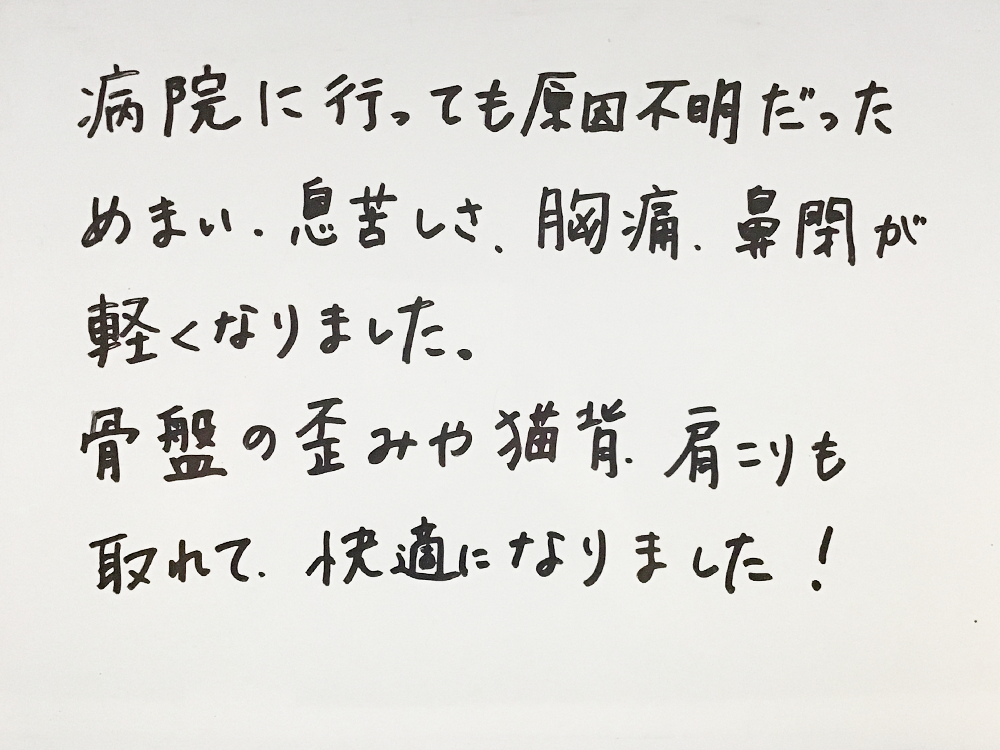 病院に行っても原因不明だった
めまい、息苦しさ、胸痛、鼻閉が
軽くなりました。
骨盤の歪みや猫背、肩こりも
取れて、快適になりました！